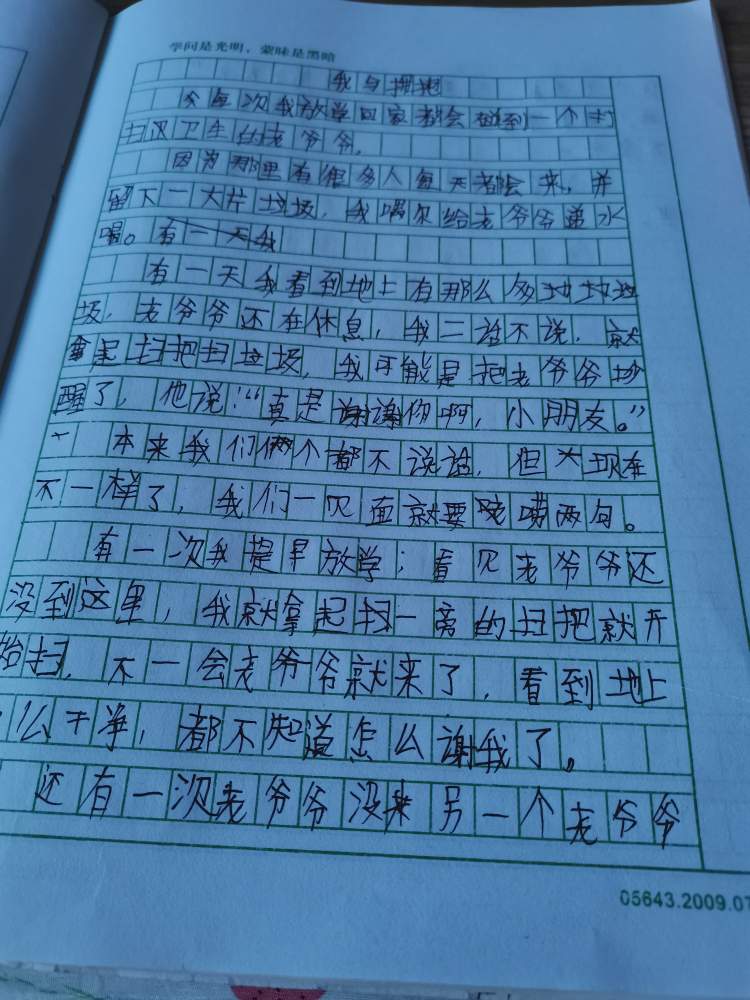 学问是光明，蒙昧是黑暗
我与拥抱
今每次我放学回家都会碰到一个打
扫卫生的老爷爷，
因为那里有很多人每天都会来，并
留下一大片垃圾，我偶尔给老爷爷递水
喝。有一天我
有一天我看到地上有那么多垃圾
圾，老爷爷还在休息，我二话不说，就
拿起扫把扫垃圾，我可能是把老爷爷吵
醒了，他说：“真是谢谢你啊，小朋友。”
本来我们俩个都不说话，但 现在
不一样了，我们一见面就要唠两句。
有一次我提早放学；看见老爷爷还
没到这里，我就拿起扫一旁的扫把就开
始扫，不一会老爷爷就来了，看到地上
么干净，都不知道怎么谢我了。
还有一次老爷爷没来另一个老爷爷
05643.2009.07